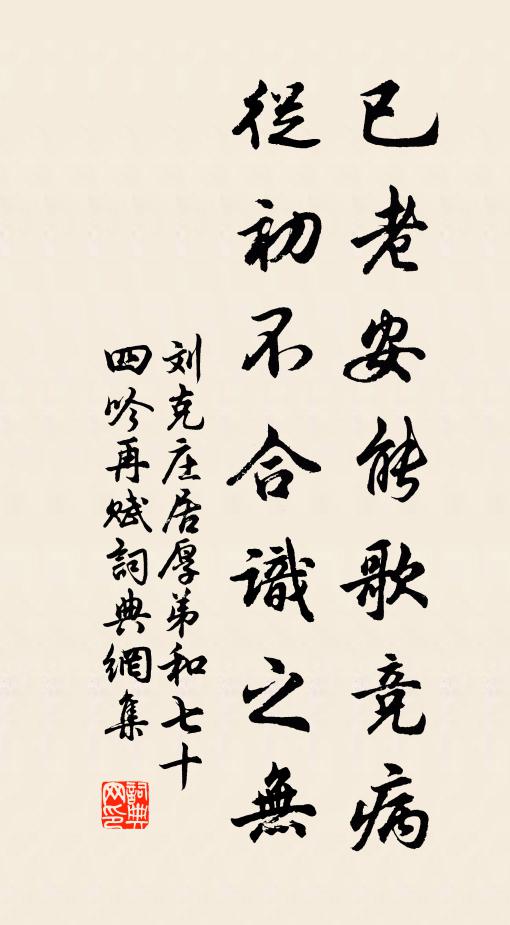 已老安能歌竞病
從初不合識之無
刘克庄居厚弟和七十
四吟再赋詞典網集
詞典网印